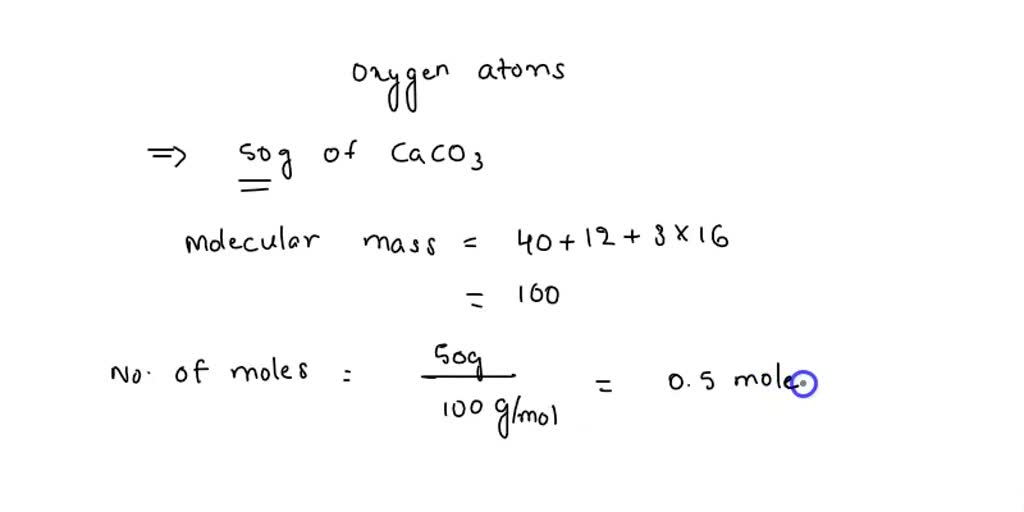 oxygen atoms
⇒ 50g of CaCO3
Molecular mass = 40+12+3×16
= 100
No. of moles = 50g / 100 g/mol = 0.5 mole